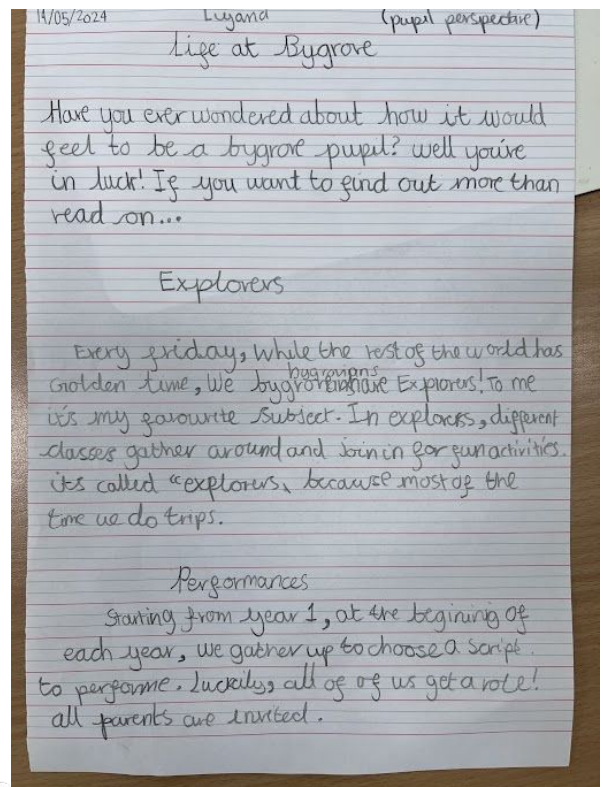 14/05/2024 Luyand (pupil perspective)
Life at Bygrove
Have you ever wondered about how it would
feel to be a bygrove pupil? well you're
in luck! If you want to find out more than
read on...
Explorers
Every friday, While the rest of the world has
Golden time, We bygrovians have Explorers! To me
it's my favourite subject. In explorers, different
classes gather around and join in for fun activities.
it's called "explorers, because most of the
time we do trips.
Performances
Starting from year 1, at the begining of
each year, we gather up to choose a script
to performe. Luckily, all of of us get a role!
all parents are invited.